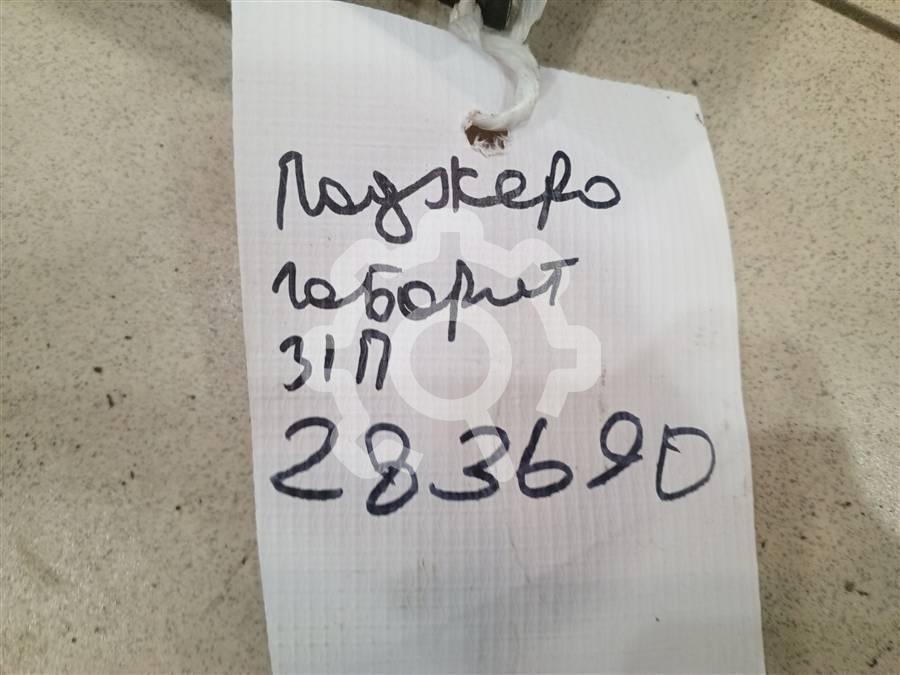 Паджеро
габарит
З/П
283690